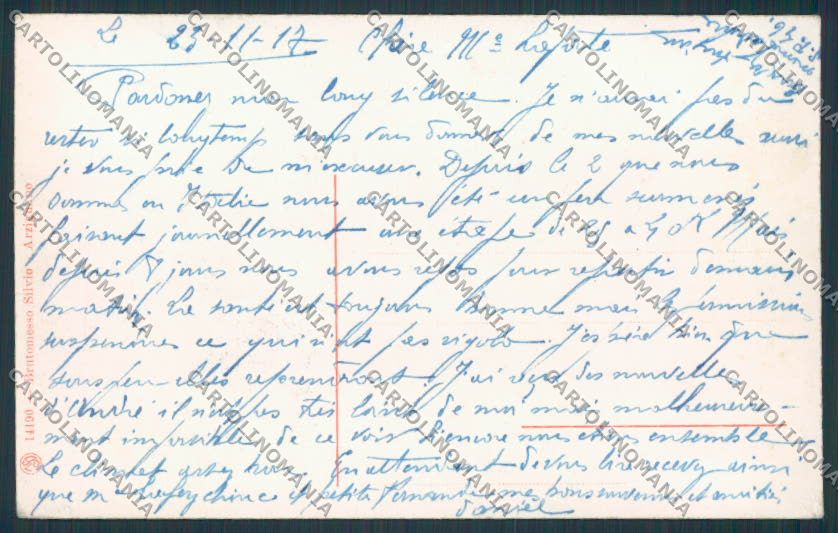 Le 23-11-17 Chère Mlle Laforte
Pardonez mon long silence. Je n'aurai pas du
rester si longtemps sans vous donner de mes nouvelles aussi
je vous prie de m'excuser. Depuis le 2 que nous
sommes en Italie nous avons été un peu surmenés
faisant journellement une étape de 25 a 40 K Mais
depuis 8 jours nous avons repos pour repartir demain
matin. La santé est toujours bonne mais les permissions
suspendues ce qui n'est pas rigolo. J'espère bien que
sous peu elles reprendront. J'ai reçu des nouvelles
d'André il n'est pas très loin de moi mais malheureuse-
ment impossible de ce voir encore nous étions ensemble
Le climat assez bon. En attendant de vous lire recevez ainsi
que Mme et petite Fernande mes bons souvenirs et amitiés
Daniel
14190 - Brutomesso Silvio - Arzignano
CARTOLINOMANIA